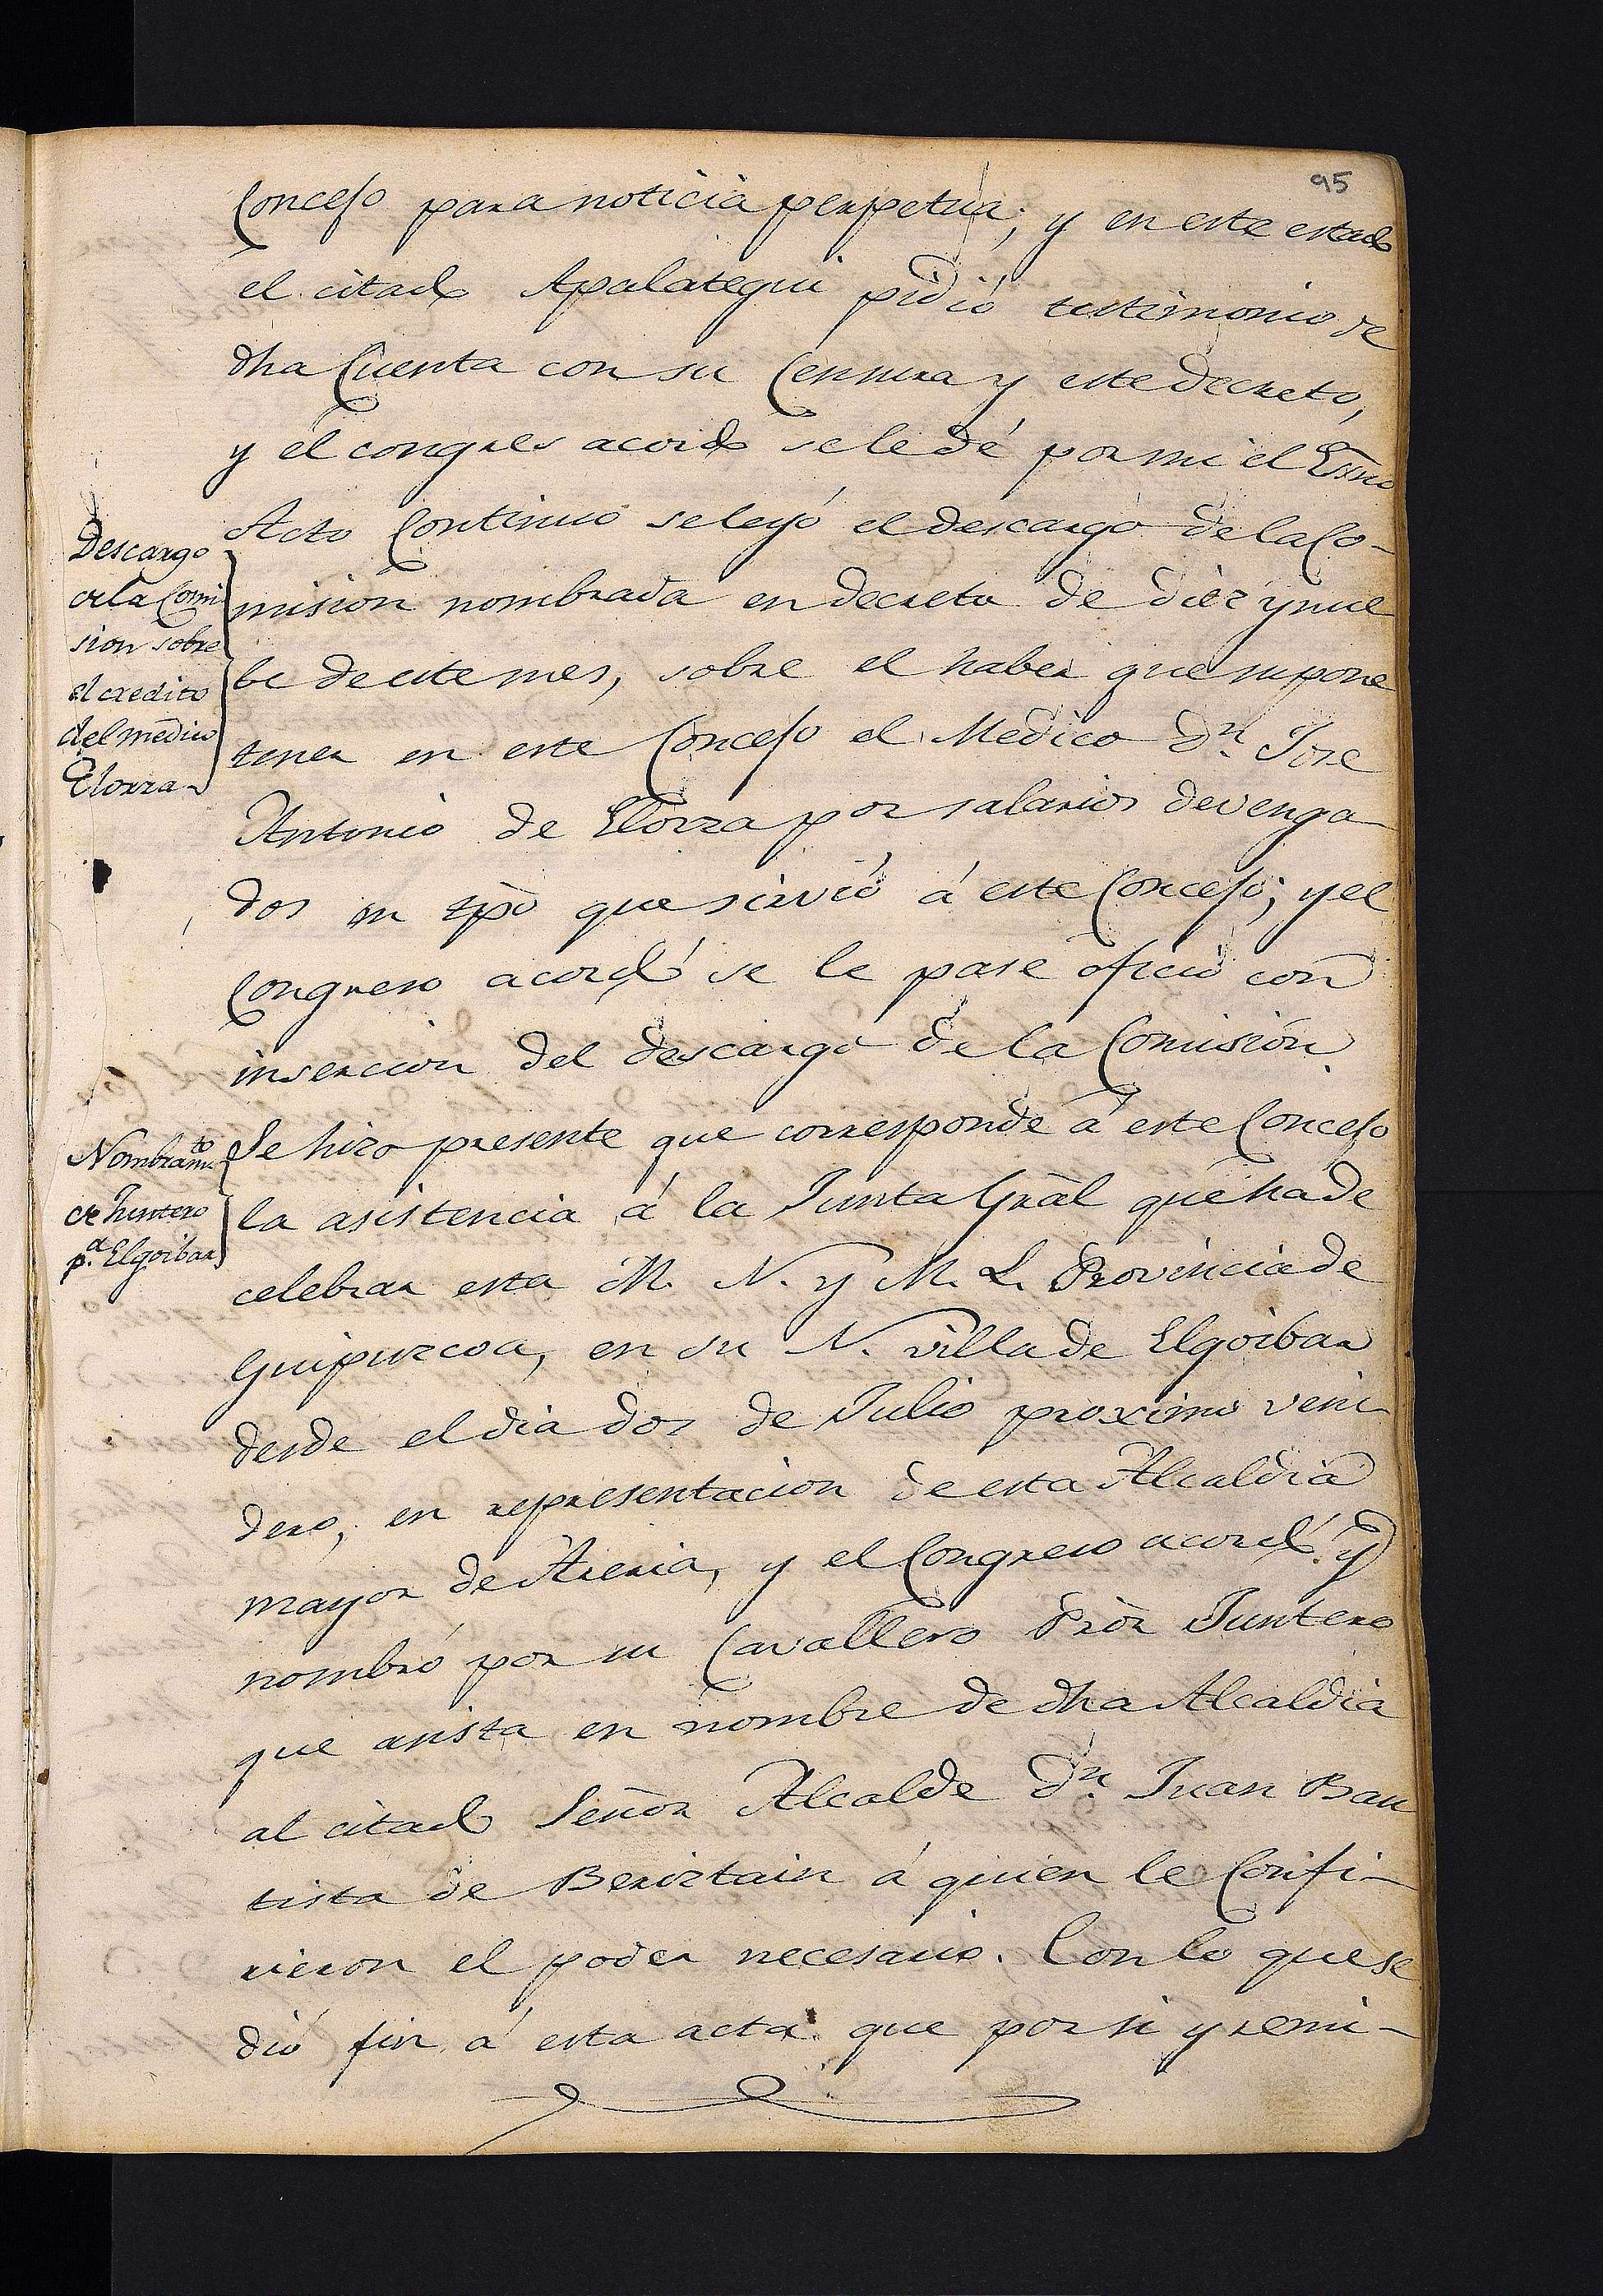 95
Concejo para noticia perpetua; y en este estado
el citado Apalategui pidió testimonio de
dha Cuenta con su Censura y este decreto,
y el congreso acordó se le dé por mi el Esno
Descargo
de la Comi
sion sobre
el credito
del medico
Elorza
Acto Continuo se leyó el descargo de la Co-
mision nombrada en decreto de diez y nue
be de este mes, sobre el haber que supone
tener en este Concejo el Medico Dn. Jose
Antonio de Elorza por salarios devenga-
dos en tpo que sirvió á este Concejo; y el
Congreso acordó se le pase oficio con
insercion del descargo de la Comision
Nombramto
de Juntero
pa. Elgoibar
Se hizo presente que corresponde á este Concejo
la asistencia á la Junta Gral que ha de
celebrar esta M. N. y M. L. Provincia de
Guipuzcoa, en su N. villa de Elgoibar
desde el dia dos de Julio proximo veni-
dero, en representacion de esta Alcaldia
mayor de Areria, y el Congreso acordó y
nombró por su Cavallero Pror Juntero
que asista en nombre de dha Alcaldia
al citado Señor Alcalde Dn. Juan Bau
tista de Beriztain á quien le Confi-
rieron el poder necesario. Con lo que se
dió fin á esta acta que por si y remi-